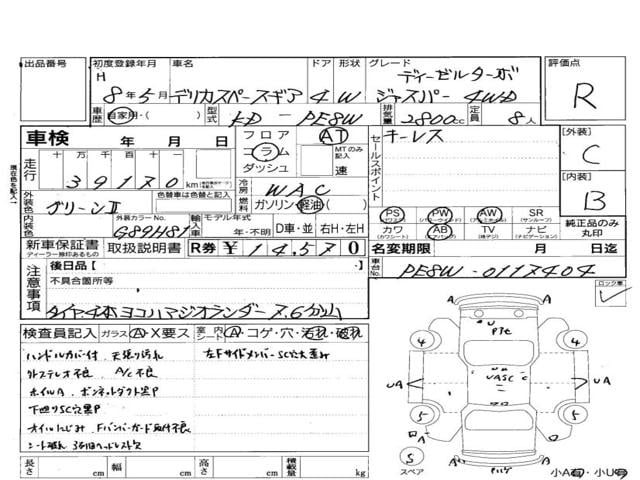 出品番号 初度登録年月 車名 ドア 形状 グレード 評価点
H 8年5月 デリカスペースギア 4 W ディーゼルターボ ジャスパー 4WD R
車歴 自家用・( ) 型式 KD - PE8W 排気量 2800cc 定員 8人
車検 年 月 日 フロア AT コラム ダッシュ MTのみ記入 速
セールスポイント キーレス
[外装] C
走行 十 万 千 百 十 一
39170 km
冷房 WAC
[内装] B
外装色 グリーンⅡ 色替車は色替と記入 燃料 ガソリン・軽油・( )
内装色 外装カラーNo. G89H81 輸入車 モデル年式 年・不明 D車・並 右H・左H
PS PW AW SR
(パワーウィンドウ) (サンルーフ)
カワ AB TV ナビ
(カワシート) (エアバッグ) (ナビゲーション)
純正品のみ丸印
新車保証書 取扱説明書 R券 ¥14,570 名変期限 月 日迄
ディーラー捺印あるもの
現在色を記入
注意事項 後日品[ ]
不具合箇所等
タイヤ4本ヨコハマジオランダー 7.6分山
車台No. PE8W-0117404
ロック車
検査員記入 ガラス A・X要ス 室内シート A・コゲ・穴・汚れ・破れ
ハンドルカバー付 天張り汚れ 左Fサイドメンバー SC穴大歪み
外ステレオ不良 A/C不良
ホイルA ボンネットダクト黒P
下廻りSC穴黒P
オイルにじみ Fバンパーガード取付不良
シート破れ 3列目ヘッドレスト欠
U
PTC
4 4
UA UASC UA
5 5
A A
S
スペア
小A・小U
長さ cm 幅 cm 高さ cm 積載量 kg